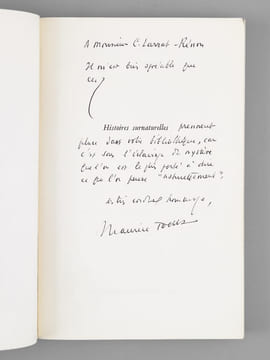 A Monsieur C. Larrat-Rénon
Il m'est très agréable que
ces
Histoires surnaturelles prennent
place dans votre bibliothèque, car
c'est sous l'éclairage du mystère
que l'on est le plus porté à dire
ce que l'on pense "naturellement".
très cordial hommage,
Maurice